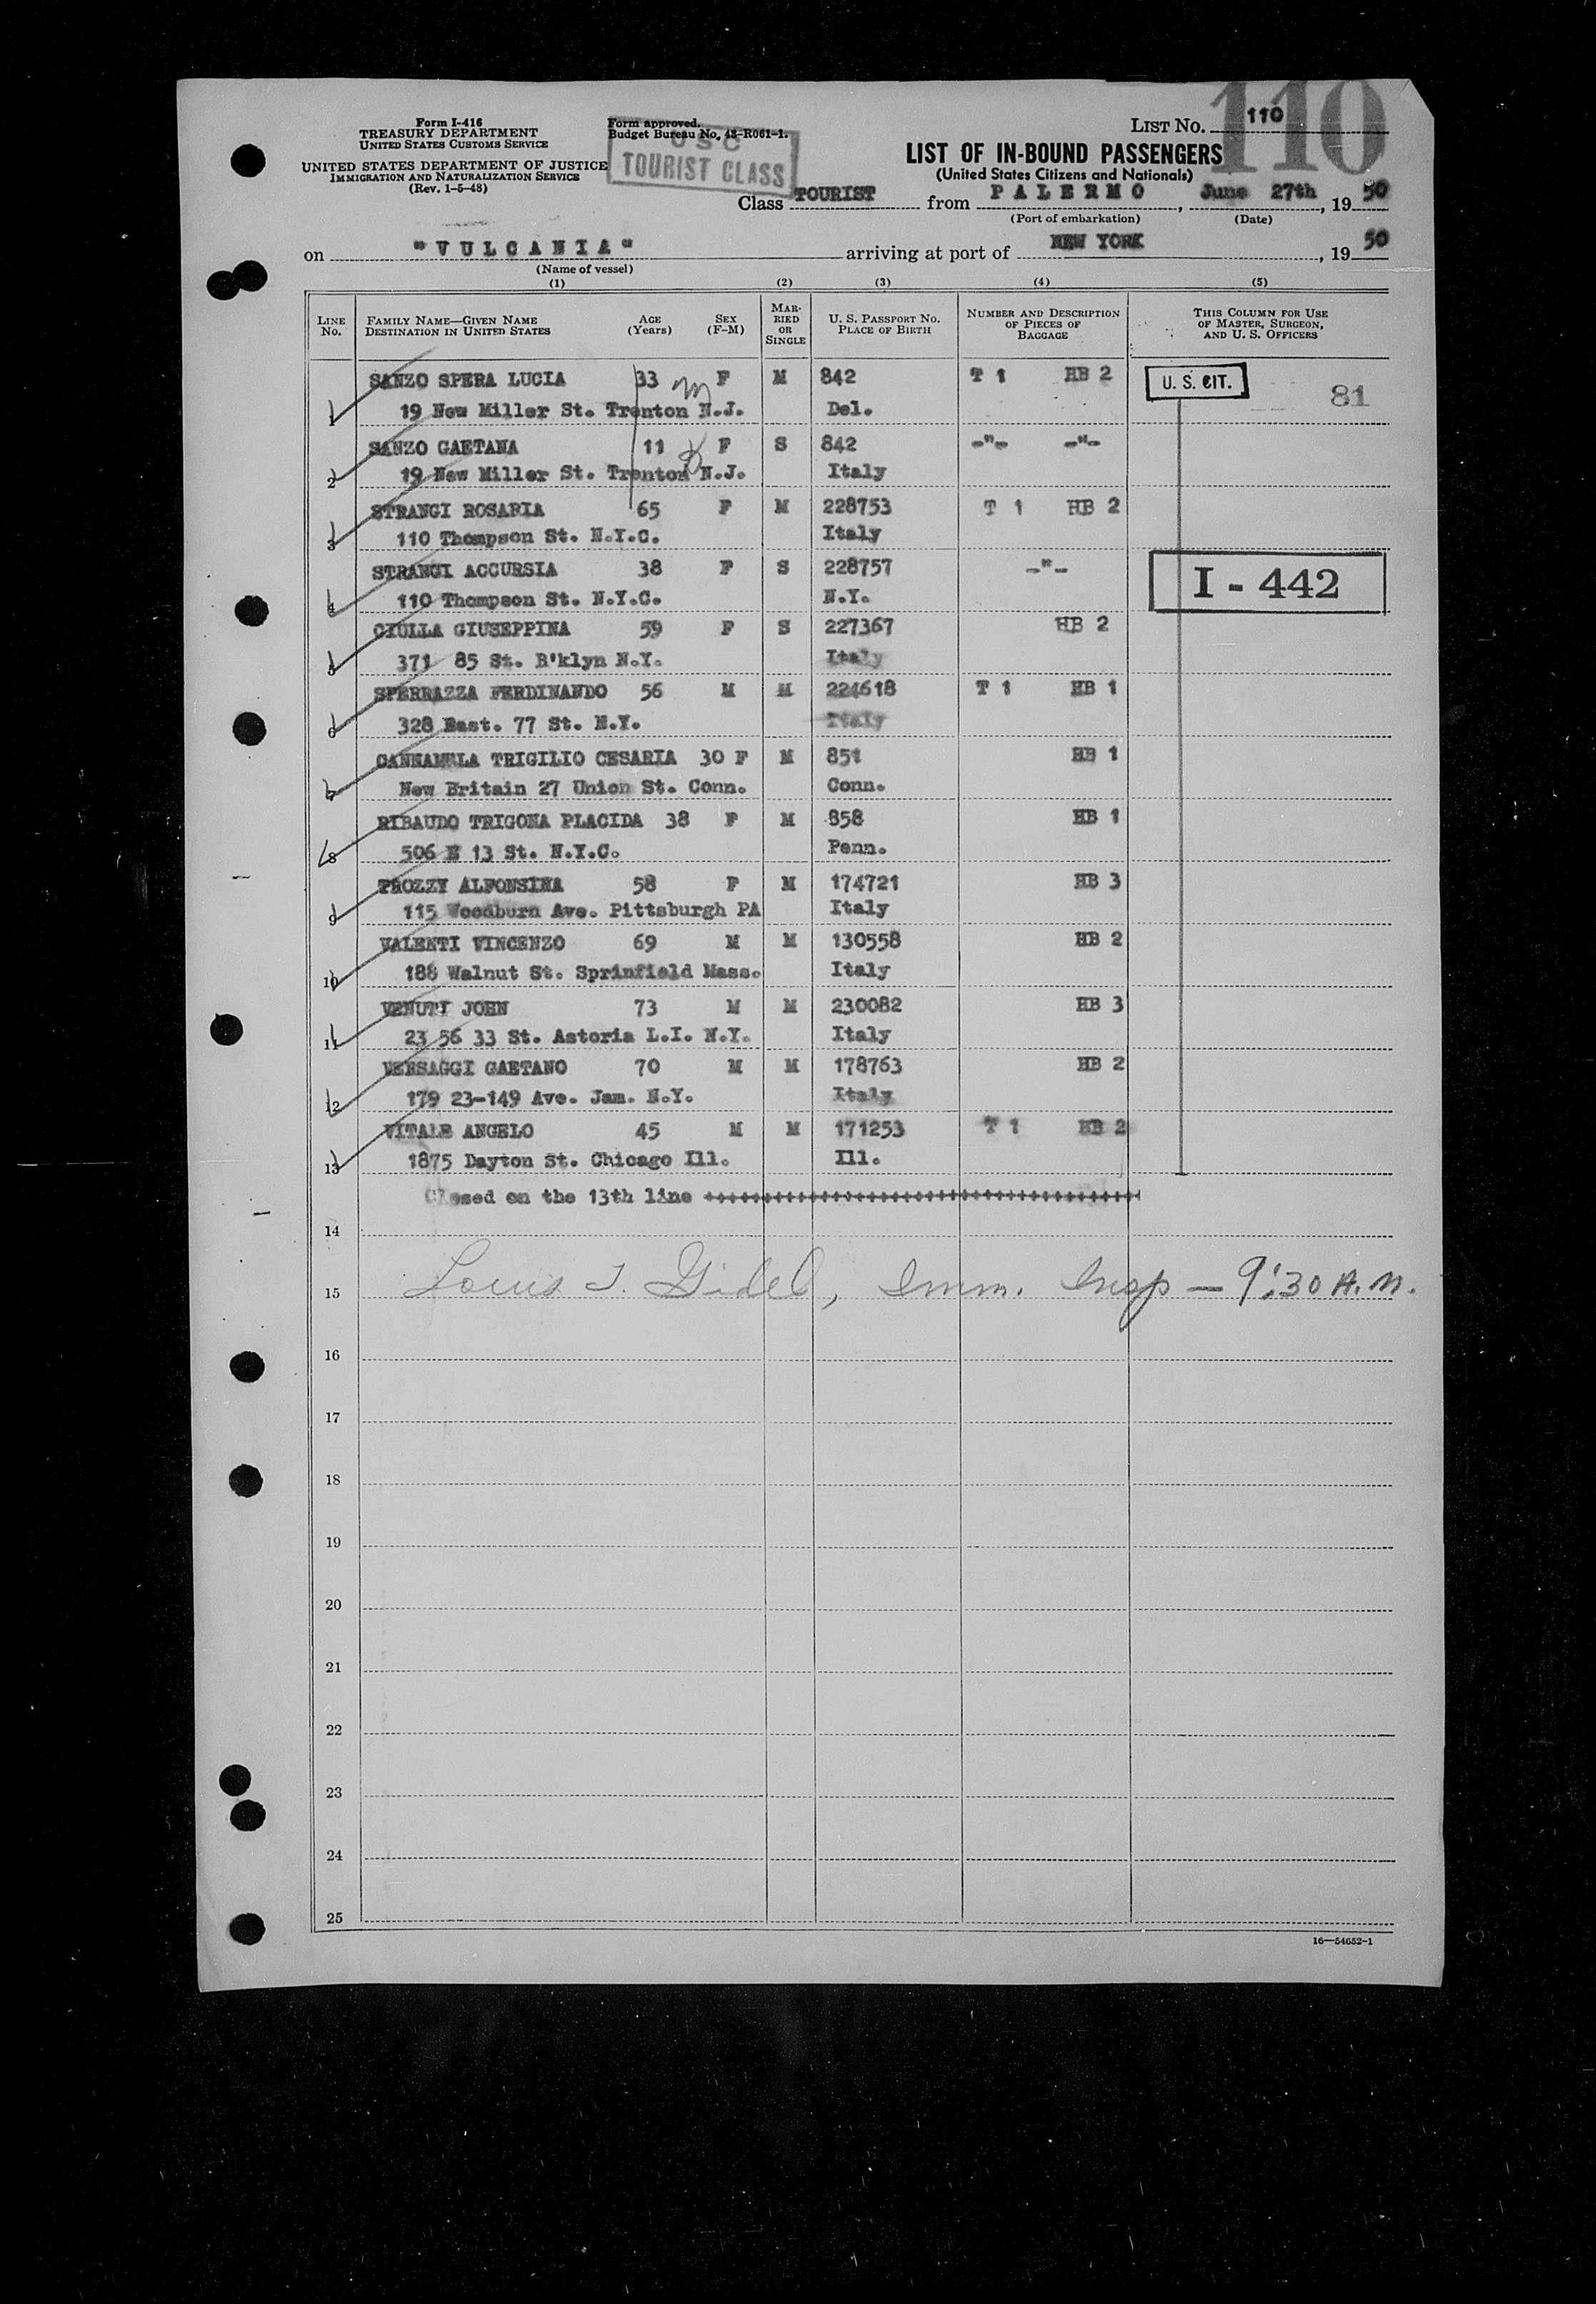 Form I-416
TREASURY DEPARTMENT
UNITED STATES CUSTOMS SERVICE
UNITED STATES DEPARTMENT OF JUSTICE
IMMIGRATION AND NATURALIZATION SERVICE
(Rev. 1-5-48)
Form approved.
Budget Bureau No. 43-R061-1.
U S C
TOURIST CLASS
110
LIST No. 110
LIST OF IN-BOUND PASSENGERS
(United States Citizens and Nationals)
Class TOURIST from PALERMO, June 27th, 1950
(Port of embarkation) (Date)
on "VULCANIA" arriving at port of NEW YORK, 1950
(Name of vessel)
(1) (2) (3) (4) (5)
LINE No. FAMILY NAME—GIVEN NAME DESTINATION IN UNITED STATES AGE (Years) SEX (F-M) MARRIED OR SINGLE U. S. PASSPORT NO. PLACE OF BIRTH NUMBER AND DESCRIPTION OF PIECES OF BAGGAGE THIS COLUMN FOR USE OF MASTER, SURGEON, AND U. S. OFFICERS
SANZO SPERA LUCIA 33 F M 842 T 1 HB 2 U. S. CIT. 81
1 19 New Miller St. Trenton N.J. Del.
SANZO GAETANA 11 F S 842 -"- -"-
2 19 New Miller St. Trenton N.J. Italy
STRANGI ROSARIA 65 F M 228753 T 1 HB 2
3 110 Thompson St. N.Y.C. Italy
STRANGI ACCURSIA 38 F S 228757 -"- I - 442
4 110 Thompson St. N.Y.C. N.Y.
CIULLA GIUSEPPINA 59 F S 227367 HB 2
5 371 85 St. B'klyn N.Y. Italy
SPERRAZZA FERDINANDO 56 M M 224618 T 1 HB 1
6 328 East. 77 St. N.Y. Italy
CANNAMELA TRIGILIO CESARIA 30 F M 851 HB 1
7 New Britain 27 Union St. Conn. Conn.
RIBAUDO TRIGONA PLACIDA 38 F M 858 HB 1
8 506 E 13 St. N.Y.C. Penn.
PROZZY ALFONSINA 58 F M 174721 HB 3
9 115 Woodburn Ave. Pittsburgh PA Italy
VALENTI VINCENZO 69 M M 130558 HB 2
10 186 Walnut St. Sprinfield Mass. Italy
VENUTI JOHN 73 M M 230082 HB 3
11 23 56 33 St. Astoria L.I. N.Y. Italy
VERSAGGI GAETANO 70 M M 178763 HB 2
12 179 23-149 Ave. Jam. N.Y. Italy
VITALE ANGELO 45 M M 171253 T 1 HB 2
13 1875 Dayton St. Chicago Ill. Ill.
Closed on the 13th line
14
15 Louis J. Gidel, Imm. Insp — 9:30 A.M.
16
17
18
19
20
21
22
23
24
25
16—54652-1